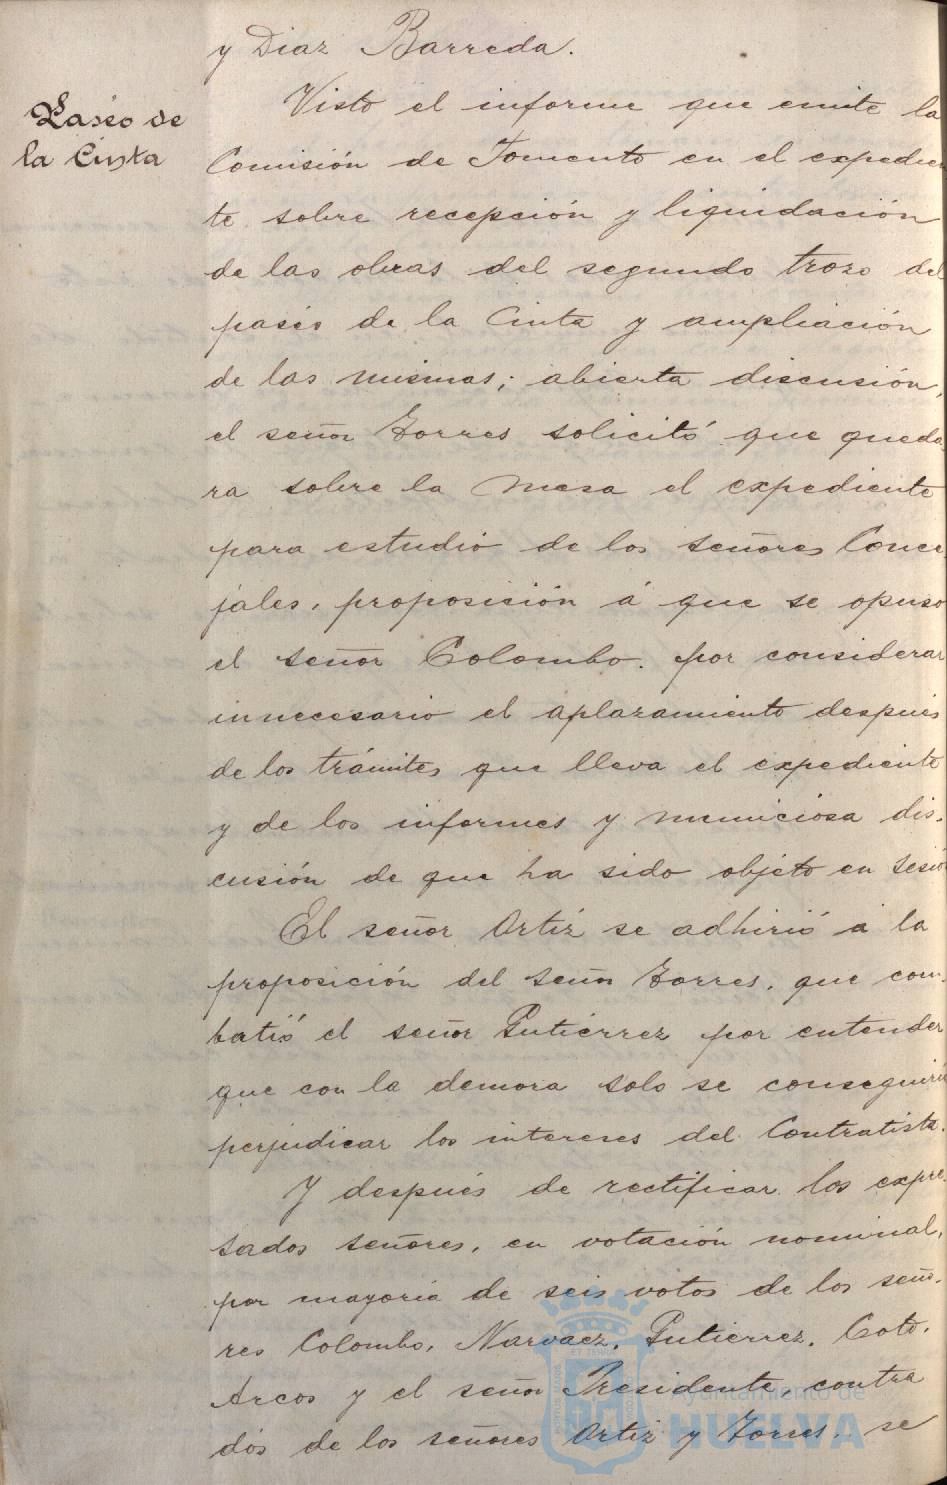 y Diaz Barreda.
Paseo de
la Cinta
Visto el informe que emite la
Comisión de Fomento en el expedien
te sobre recepción y liquidación
de las obras del segundo trozo del
paseo de la Cinta y ampliación
de las mismas; abierta discusión,
el señor Torres solicitó que queda
ra sobre la mesa el expediente
para estudio de los señores Conce
jales, proposición á que se opuso
el señor Colombo. por considerar
innecesario el aplazamiento después
de los trámites que lleva el expediente
y de los informes y municiosa dis-
cusión de que ha sido objeto en sesió
El señor Ortiz se adhirió á la
proposición del señor Torres, que com-
batió el señor Gutiérrez por entender
que con la demora solo se conseguiria
perjudicar los intereses del Contratista.
Y después de rectificar los expre-
sados señores, en votación nominal,
por mayoría de seis votos de los seño-
res Colombo, Narvaez, Gutierrez, Coto,
Arcos y el señor Presidente, contra
dós de los señores Ortiz y Torres, se
Ayuntamiento de
HUELVA